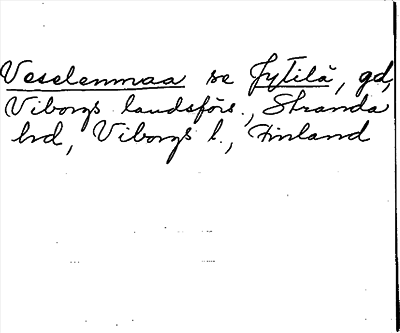 Veselenmaa se Jytilä, gd,
Viborgs landsförs., Stranda
hrd, Viborgs l., Finland